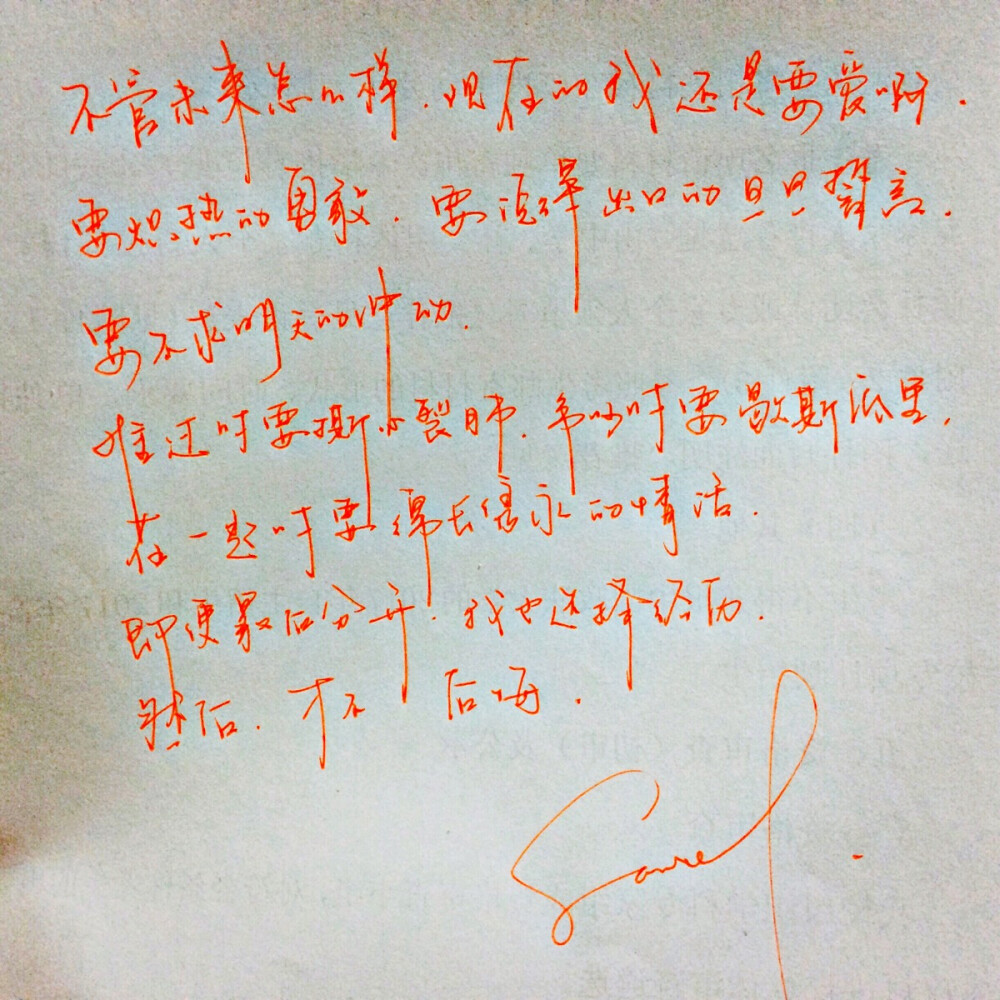 不管未来怎么样.现在的我还是要爱啊.
要炽热的勇敢.要脱口的旦旦誓言.
要不求明天的冲动.
难过时要撕心裂肺.争吵时要歇斯底里.
在一起时要绵长隽永的情话.
即便最后分开.我也选择经历.
然后.才不后悔.